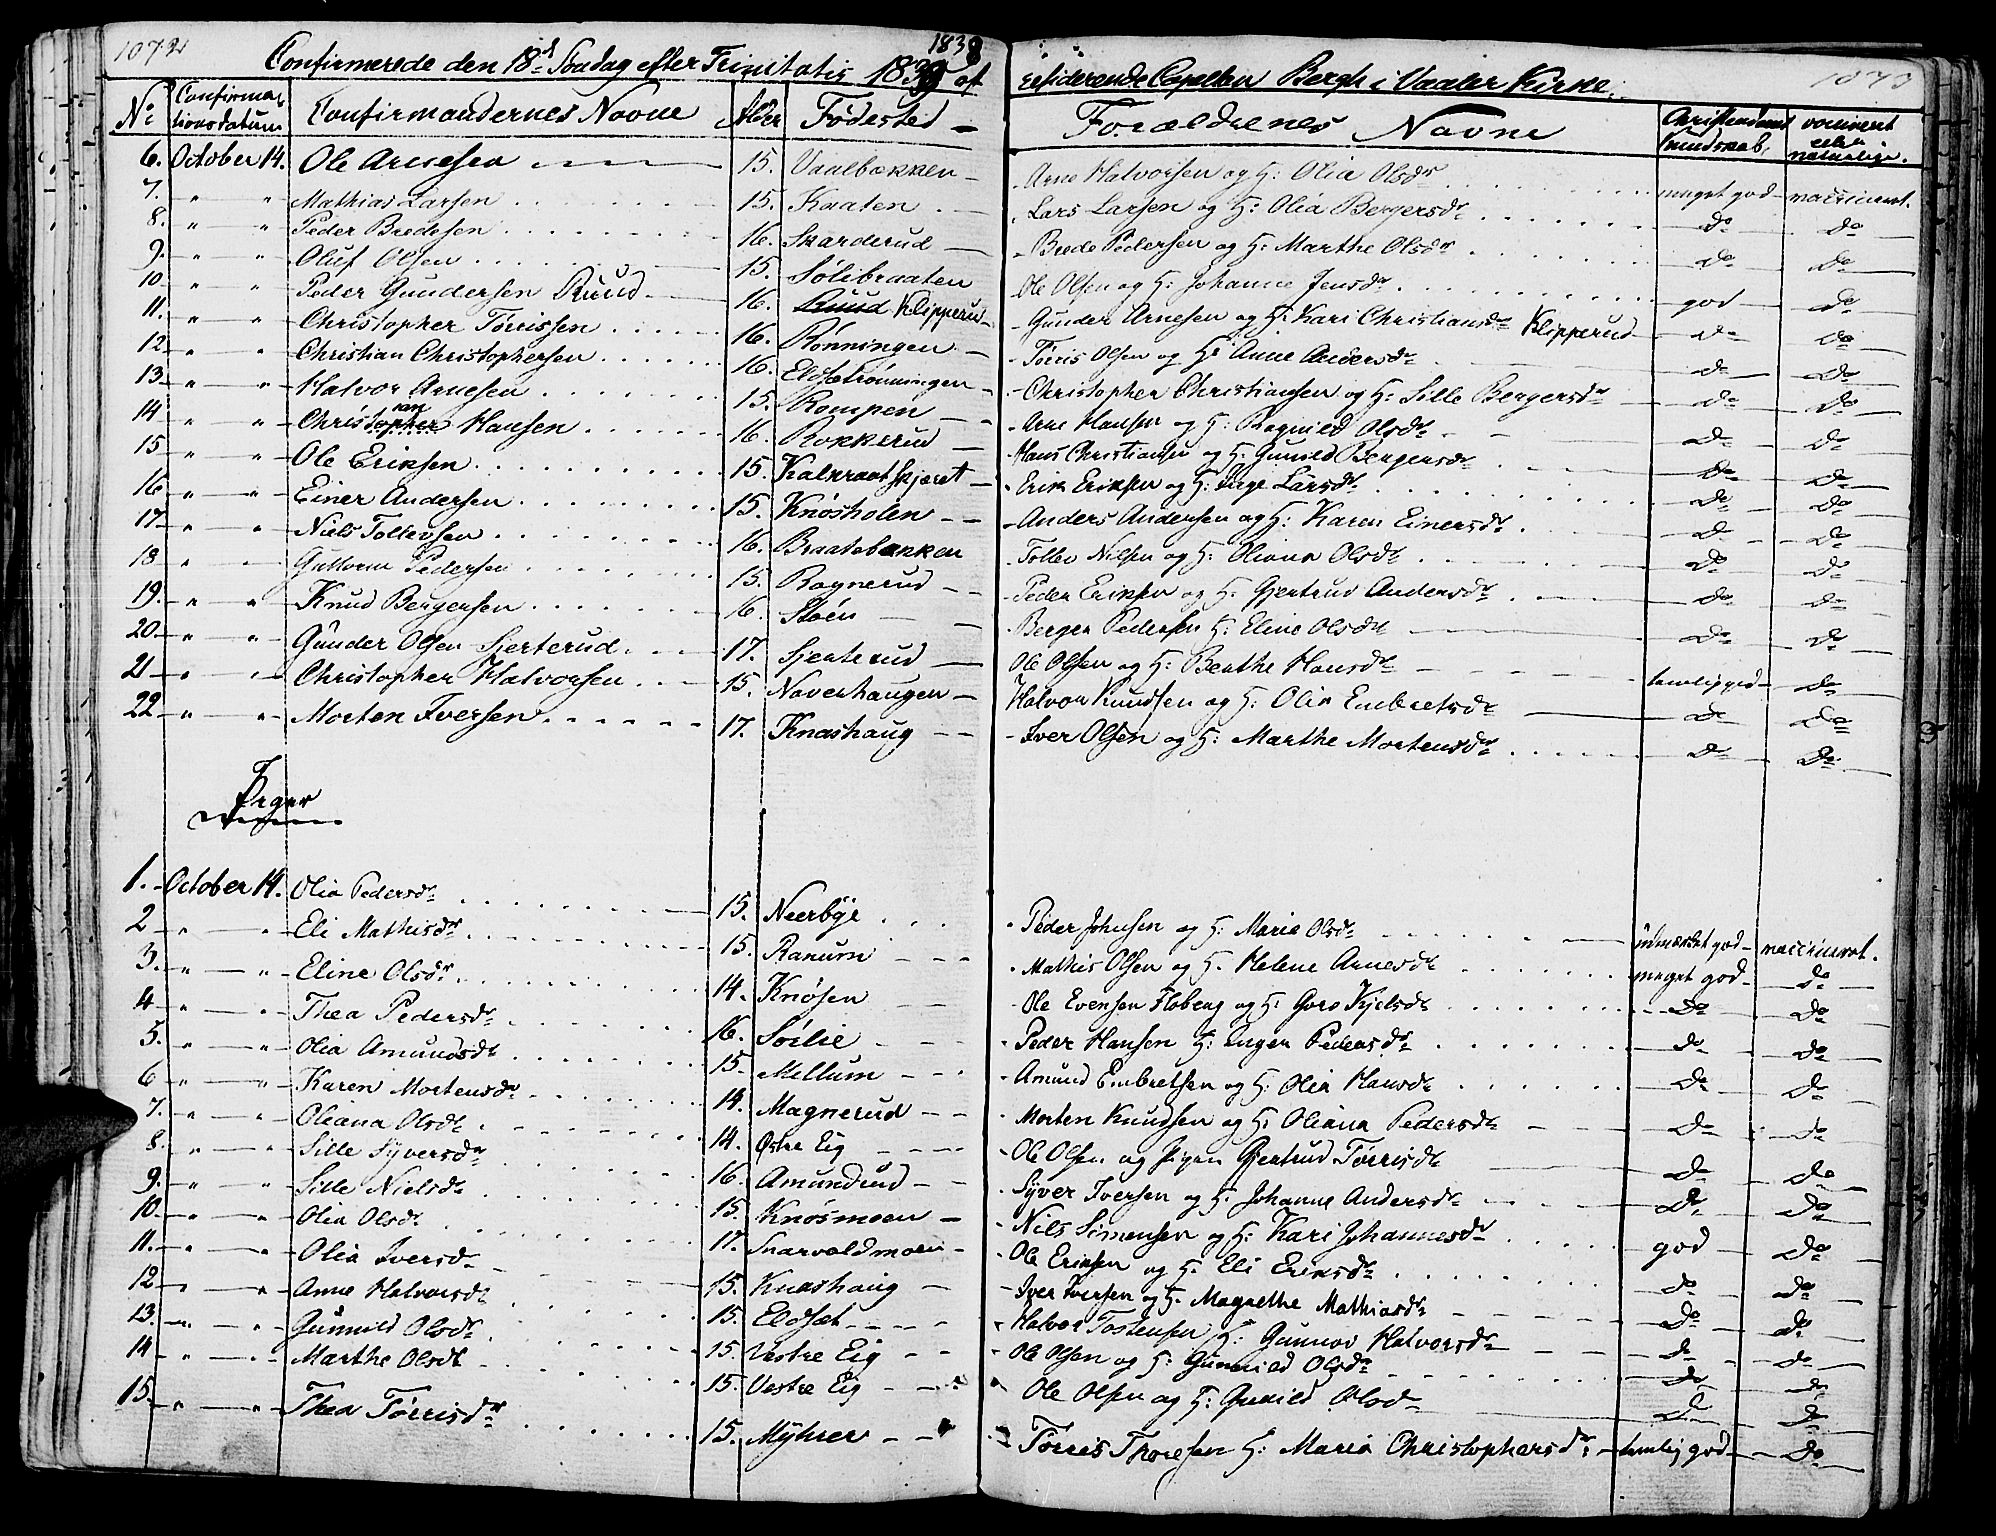 1072
1838
1073
Confirmerede den 18de Søndag efter Trinitatis 1838 af residerende Capellan Bergh i Vaaler Kirke.
No | Confirmationsdatum | Confirmandernes Navne | Alder | Fødested | Forældrenes Navne | Christendoms Kundskab | vaccineret eller naturlige
6. October 14. Ole Arnesen 15. Vaalbækken Arne Halvorsen og H: Olia Olsdr meget god vaccineret.
7. " " Mathias Larsen 15. Kaaten Lars Larsen og H: Olia Bergersdr do do
8. " " Peder Bredesen 16. Skarderud Brede Pedersen og H: Marthe Olsdr do do
9. " " Oluf Olsen 15. Sølibraaten Ole Olsen og H: Johanne Jensdr god do
10. " " Peder Gundersen Ruud 16. Ruud Klipperud Gunder Arnesen og H: Kari Christiansdr Klipperud do do
11. " " Christopher Tørrissen 16. Rønningen Tørris Olsen og H: Anne Andersdr do do
12 " " Christian Christophersen 16. Eldsætrønningen Christopher Christiansen og H: Sille Bergersdr do do
13 " " Halvor Arnesen 15. Rompen Arne Hansen og H: Ragnild Olsdr do do
14 " " Christopher ian Hansen 16. Rokkerud Hans Christiansen og H: Gunild Bergersdr do do
15 " " Ole Eriksen 15. Kalkraatskjæret Erik Eriksen og H: Inge Larsdr do do
16 " " Einer Andersen 15. Knøsholen Anders Andersen og H: Karen Einersdr do do
17 " " Niels Tollevsen 16. Braatebækken Tollev Nilsen og H: Oliana Olsdr do do
18 " " Guttorm Pedersen 15. Rognerud Peder Eriksen og H: Gjertrud Andersdr do do
19. " " Knud Bergersen 16. Støen Berger Pedersen H: Eline Olsdr do do
20. " " Gunder Olsen Sjerterud 17. Sjerterud Ole Olsen og H: Berthe Hansdr temlig god do
21 " " Christopher Halvorsen 15. Noverhaugen Halvor Knudsen og H: Olia Embretsdr do do
22 " " Morten Iversen 17. Knashaug Iver Olsen og H: Marthe Mortensdr do do
Piger
1. October 14. Olia Pedersdr 15. Neerbye Peder Johnsen og H: Maria Olsdr udmærket god vaccineret.
2 " " Eli Mathisdr 15. Ranum Mathis Olsen og H. Helene Arnesdr meget god do
3. " " Eline Olsdr 14. Knøsen Ole Evensen Floberg og H: Goro Kjelsdr do do
4 " " Thea Pedersdr 16. Sørlie Peder Hansen H: Inger Pedersdr do do
5. " " Olia Amundsdr 15. Mellum Amund Embretsen og H: Olia Hansdr do do
6 " " Karen Mortensdr 14. Magnerud Morten Knudsen og H: Oliana Pedersdr do do
7. " " Oliana Olsdr 14. Østre Eig Ole Olsen og Pigen Gjertrud Tørrisdr do do
8. " " Sille Syversdr 16 Amundrud Syver Iversen og H. Johanne Andersdr do do
9. " " Sille Nielsdr 15. Knøsmoen Nils Simensen og H: Kari Johannesdr god do
10. " " Olia Olsdr 17. Snarvoldmoen Ole Eriksen og H: Eli Eriksdr do do
11. " " Olia Iversdr 15. Knashaug Iver Iversen og H. Magrethe Mathiasdr do do
12 " " Anne Halvorsdr 15. Eldsæt Halvor Tostensen H: Gunnor Halvorsdr do do
13. " " Gunnild Olsdr 15. Vestre Eig Ole Olsen og H: Gunnild Olsdr do do
14 " " Marthe Olsdr 15. Vestre Eig Ole Olsen og H: Gunild Olsdr do do
15. " " Thea Tørrisdr 15. Myhrer Tørris Thoresen H: Maria Christophersdr temlig god do